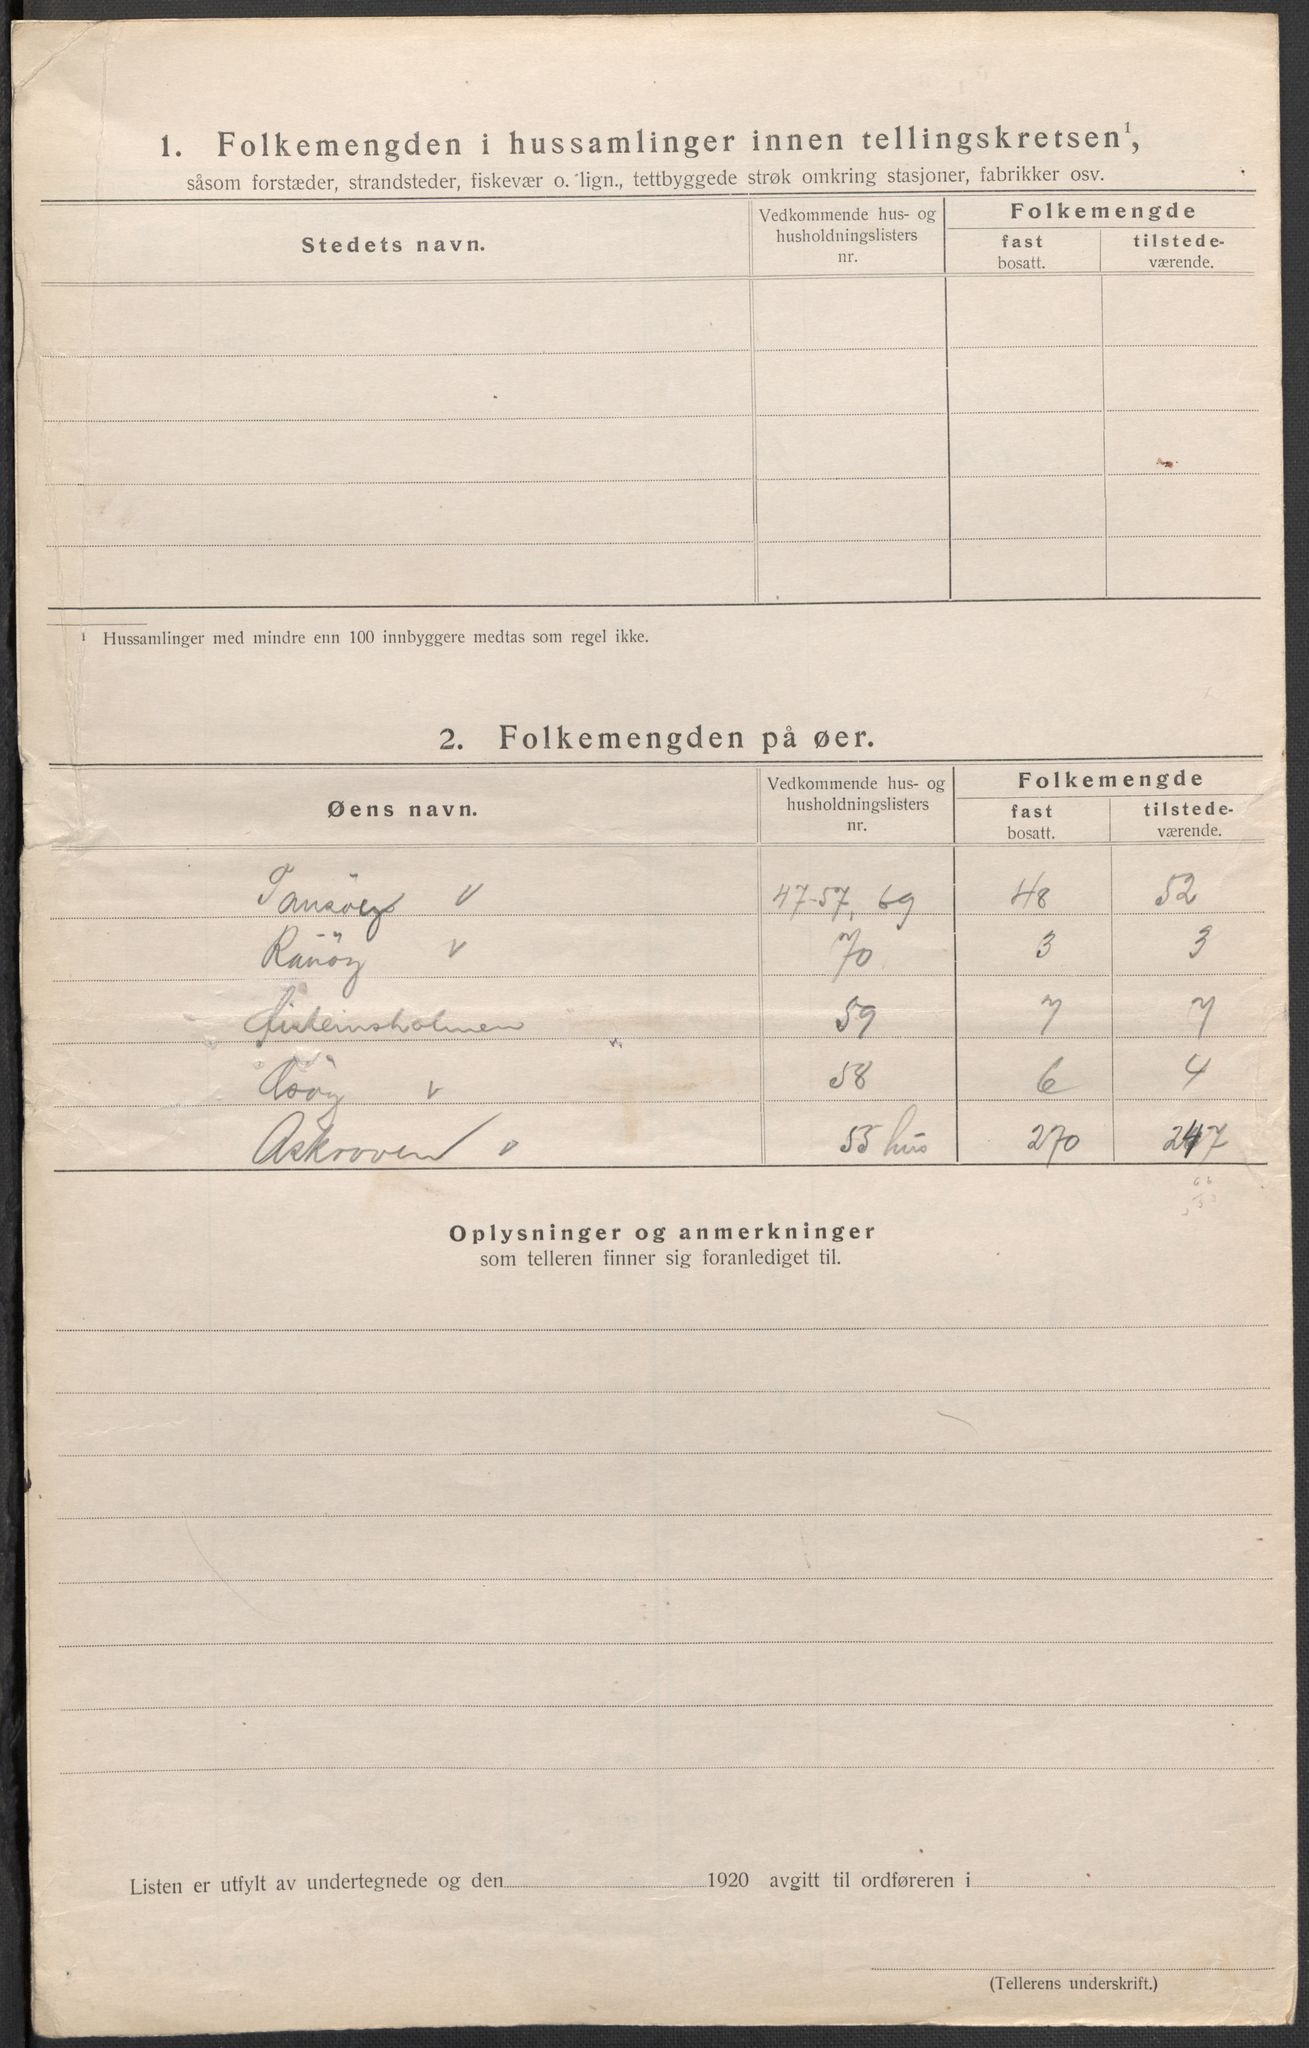 1. Folkemengden i hussamlinger innen tellingskretsen¹,
såsom forstæder, strandsteder, fiskevær o. lign., tettbyggede strøk omkring stasjoner, fabrikker osv.
Stedets navn.
Vedkommende hus- og
husholdningslisters
nr.
Folkemengde
fast
bosatt.
tilstede-
værende.
¹ Hussamlinger med mindre enn 100 innbyggere medtas som regel ikke.
2. Folkemengden på øer.
Øens navn.
Vedkommende hus- og
husholdningslisters
nr.
Folkemengde
fast
bosatt.
tilstede-
værende.
Tansöy v 47-57, 69 48 52
Rånöy v 70 3 3
59 7 7
v 58 6 4
Askroven v 55 hus 270 247
Oplysninger og anmerkninger
som telleren finner sig foranlediget til.
Listen er utfylt av undertegnede og den 1920 avgitt til ordføreren i
(Tellerens underskrift.)